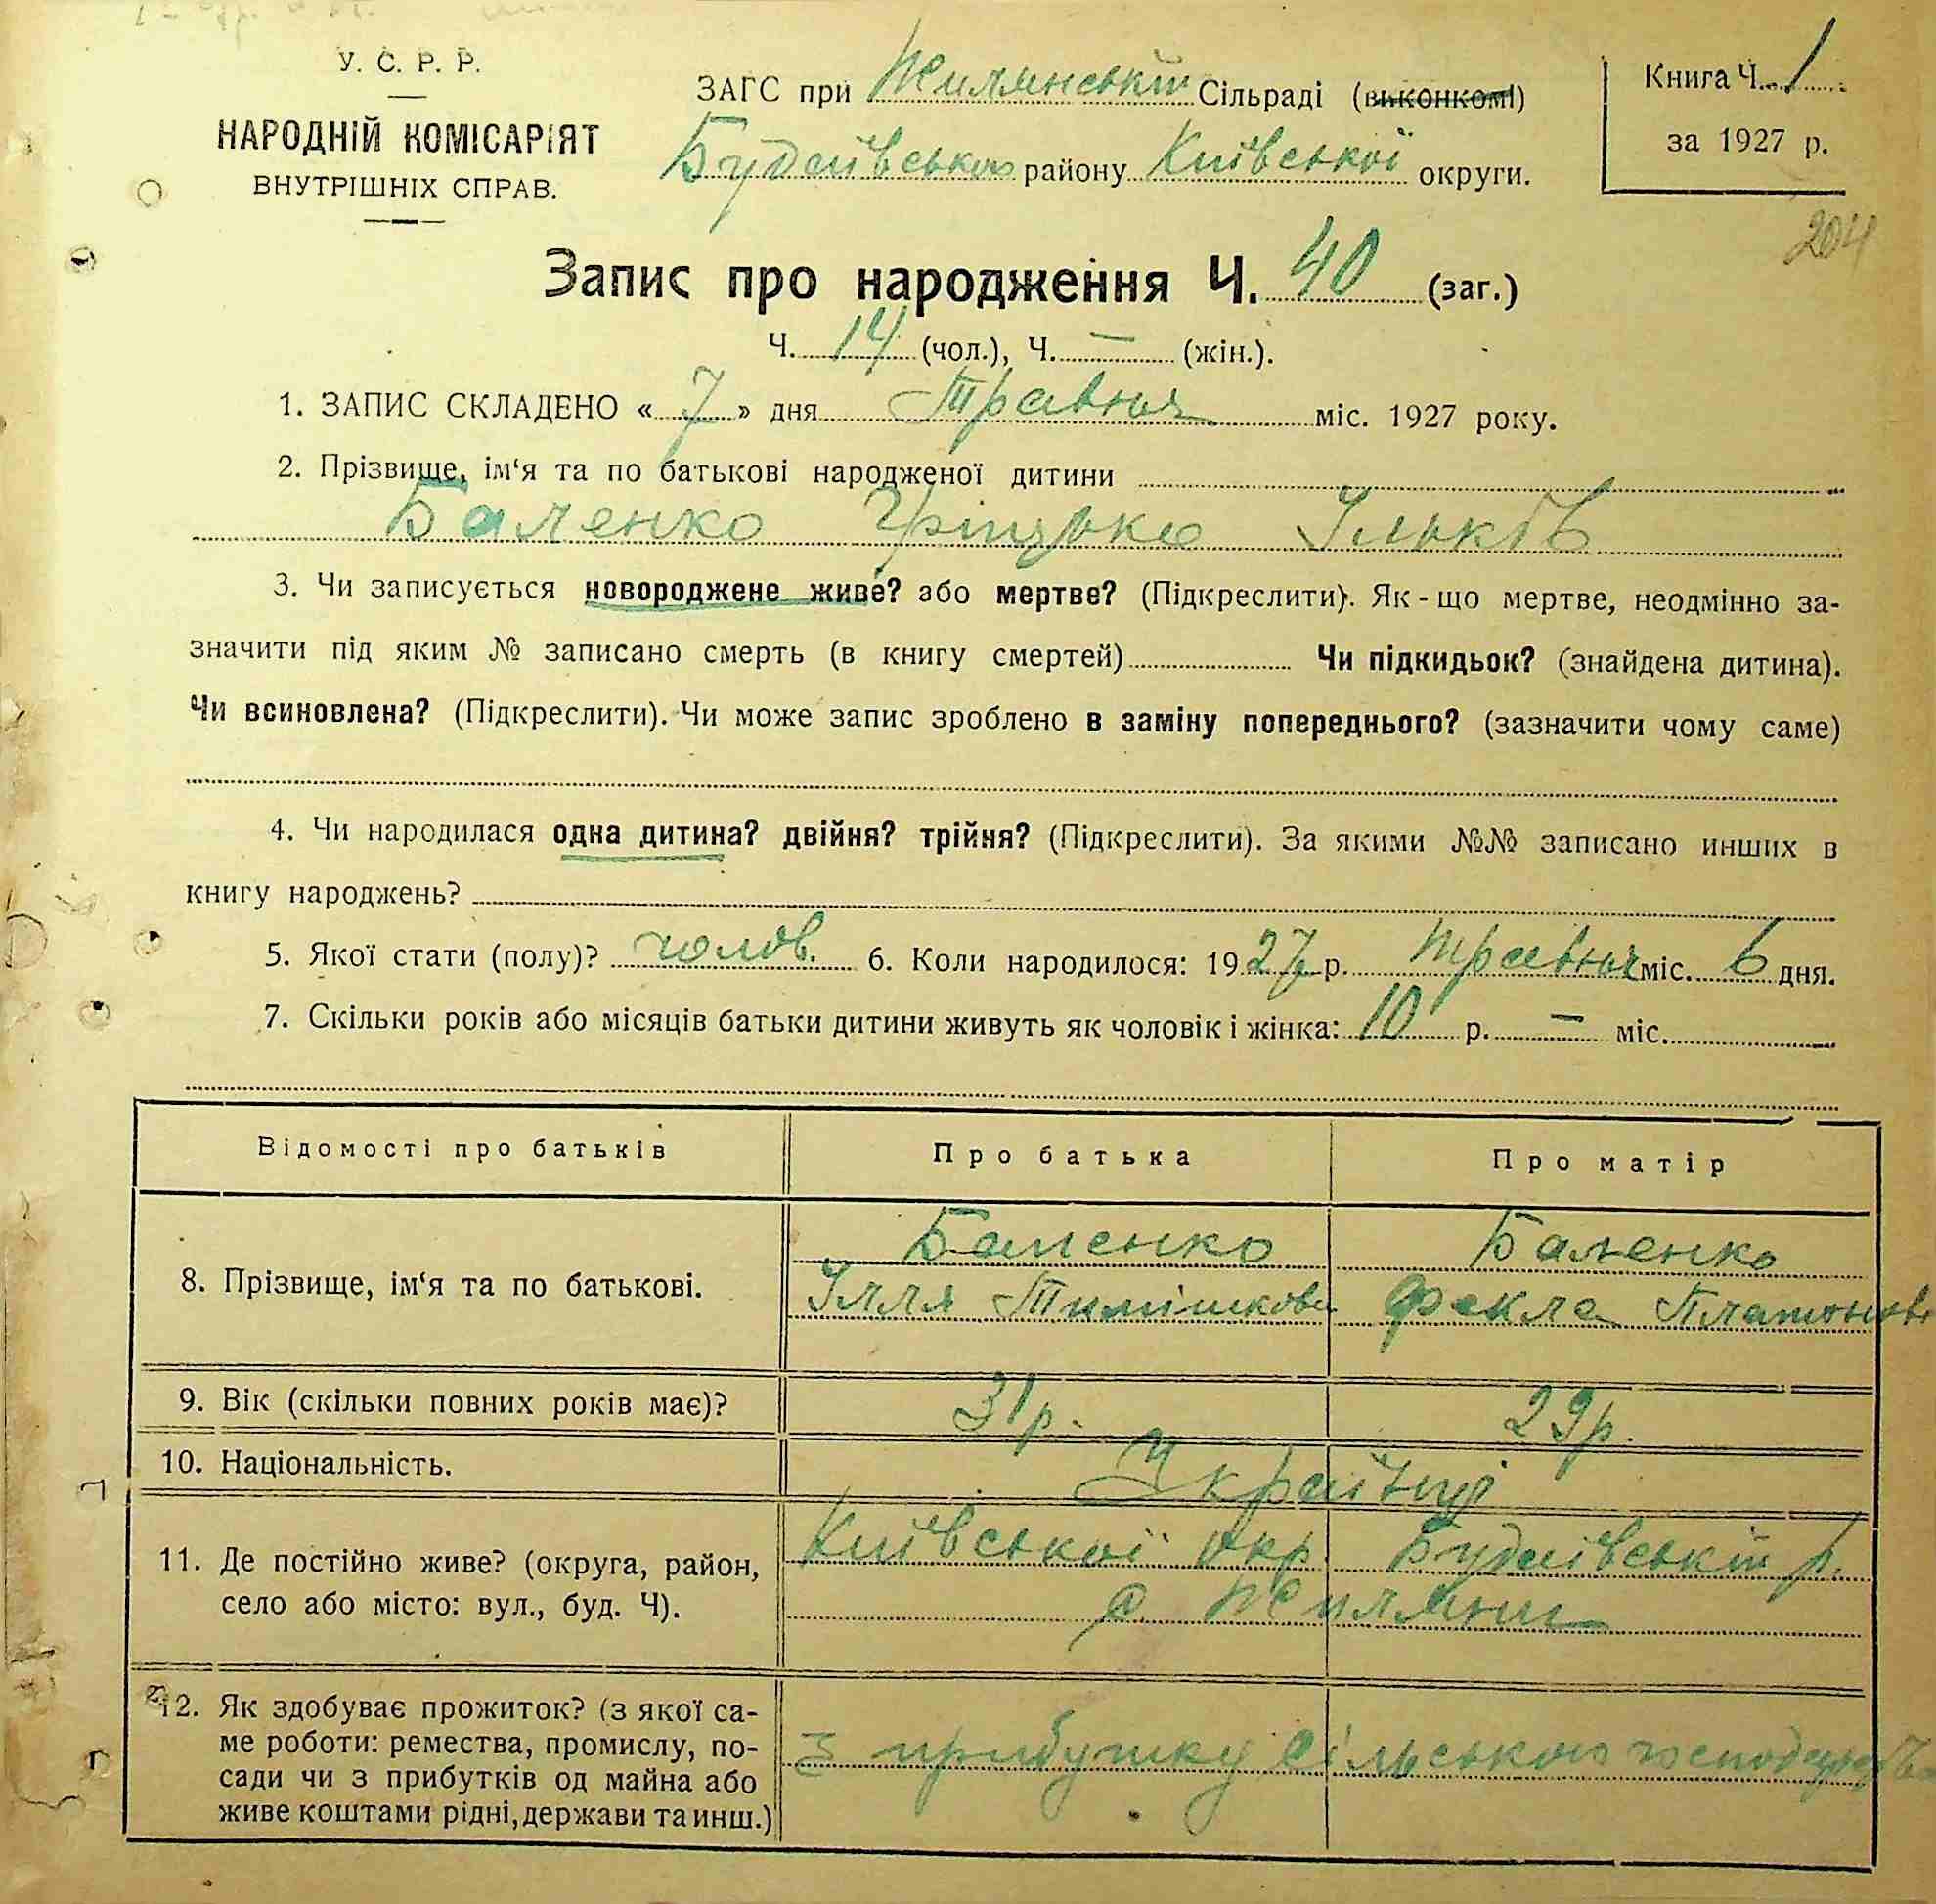 У. С. Р. Р.
НАРОДНІЙ КОМІСАРІЯТ
ВНУТРІШНІХ СПРАВ.
ЗАГС при Жилянській Сільраді (виконкомі)
Будаївського району Київської округи.
Книга Ч. 1
за 1927 р.
204
Запис про народження Ч. 40 (заг.)
Ч. 14 (чол.), Ч. — (жін.).
1. ЗАПИС СКЛАДЕНО « 7 » дня Травня міс. 1927 року.
2. Прізвище, ім‘я та по батькові народженої дитини
Баленко Гріцько Ільків
3. Чи записується новороджене живе? або мертве? (Підкреслити). Як-що мертве, неодмінно за-
значити під яким № записано смерть (в книгу смертей) Чи підкидьок? (знайдена дитина).
Чи всиновлена? (Підкреслити). Чи може запис зроблено в заміну попереднього? (зазначити чому саме)
4. Чи народилася одна дитина? двійня? трійня? (Підкреслити). За якими №№ записано инших в
книгу народжень?
5. Якої стати (полу)? чолов. 6. Коли народилося: 1927 р. Травня міс. 6 дня.
7. Скільки років або місяців батьки дитини живуть як чоловік і жінка: 10 р. — міс.
Відомості про батьків Про батька Про матір
8. Прізвище, ім‘я та по батькові.
Баленко
Ілля Тимішков
Баленко
Фекла Платонов
9. Вік (скільки повних років має)? 31 р. 29 р.
10. Національність. Українці
11. Де постійно живе? (округа, район,
село або місто: вул., буд. Ч).
Київської окр Будаївській р.
с. Жиляни
12. Як здобуває прожиток? (з якої са-
ме роботи: ремества, промислу, по-
сади чи з прибутків од майна або
живе коштами рідні, держави та инш.)
З прибутку сільського господарств